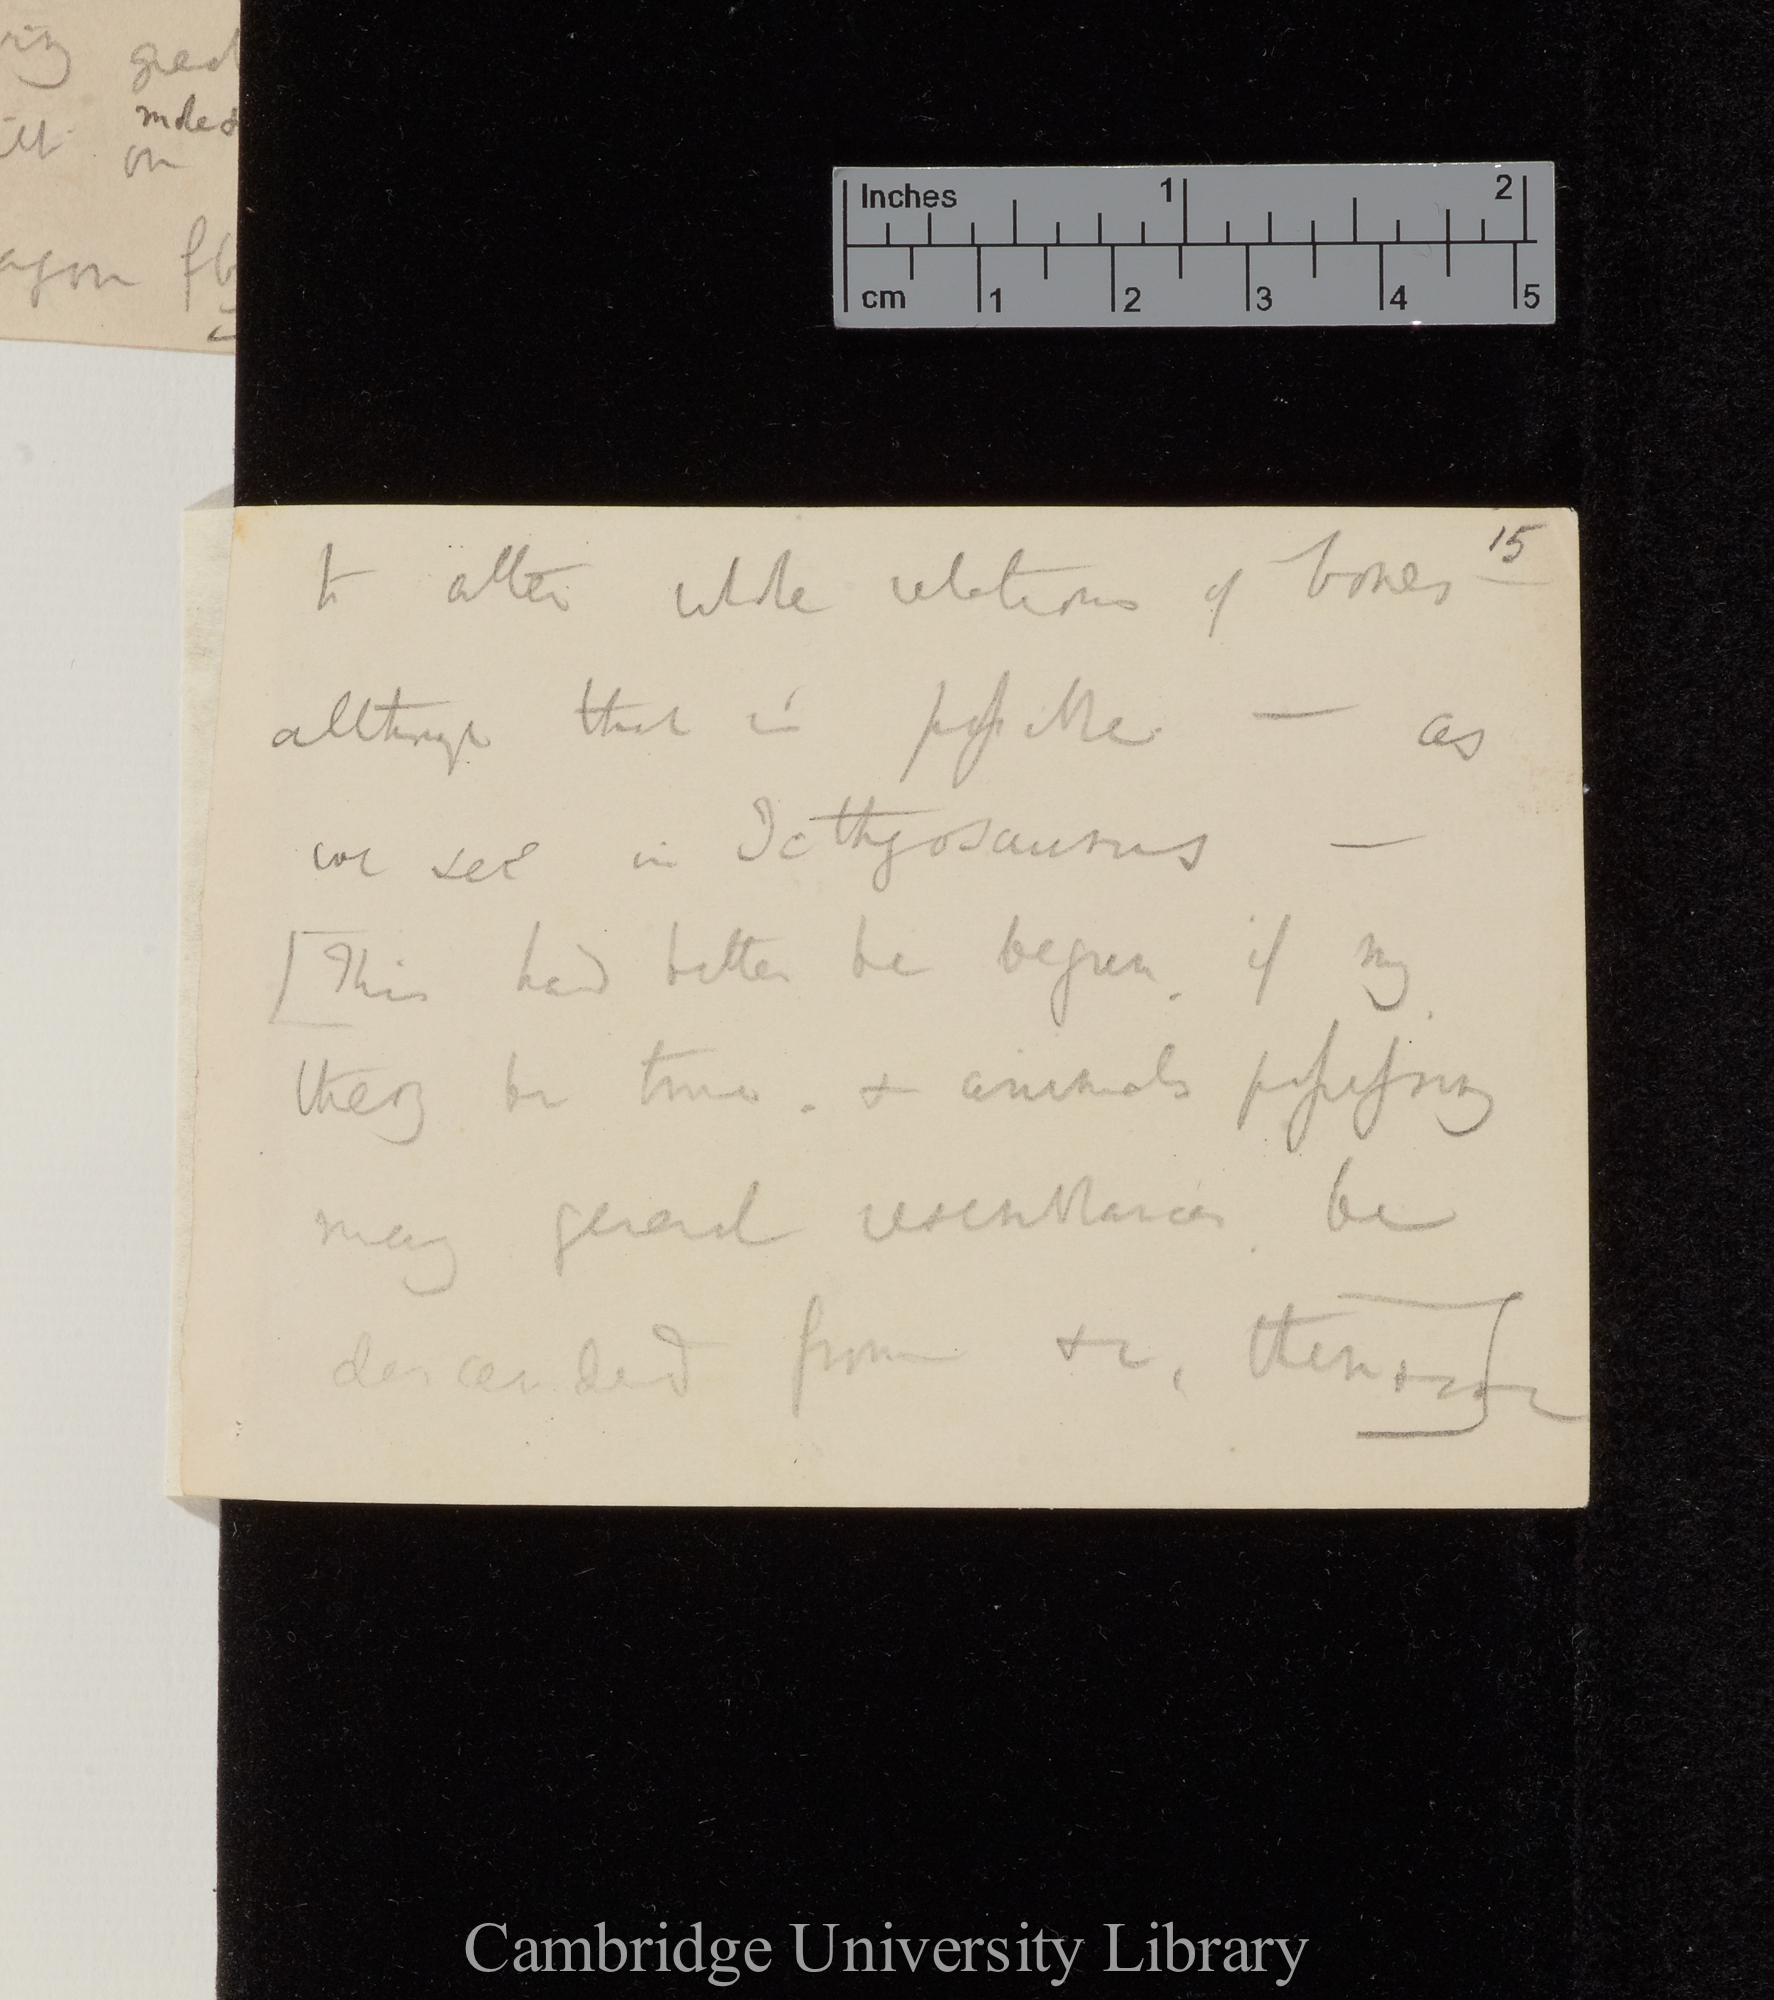 great
molest
on
Inches 1 2
cm 1 2 3 4 5
15
to alter whole relations of bones
although that is possible — as
we see in Icthyosaurus —
[This had better be begun, if my
theory be true. & animals possessing
many general resemblances, be
descended from &c, then &c &c]
Cambridge University Library